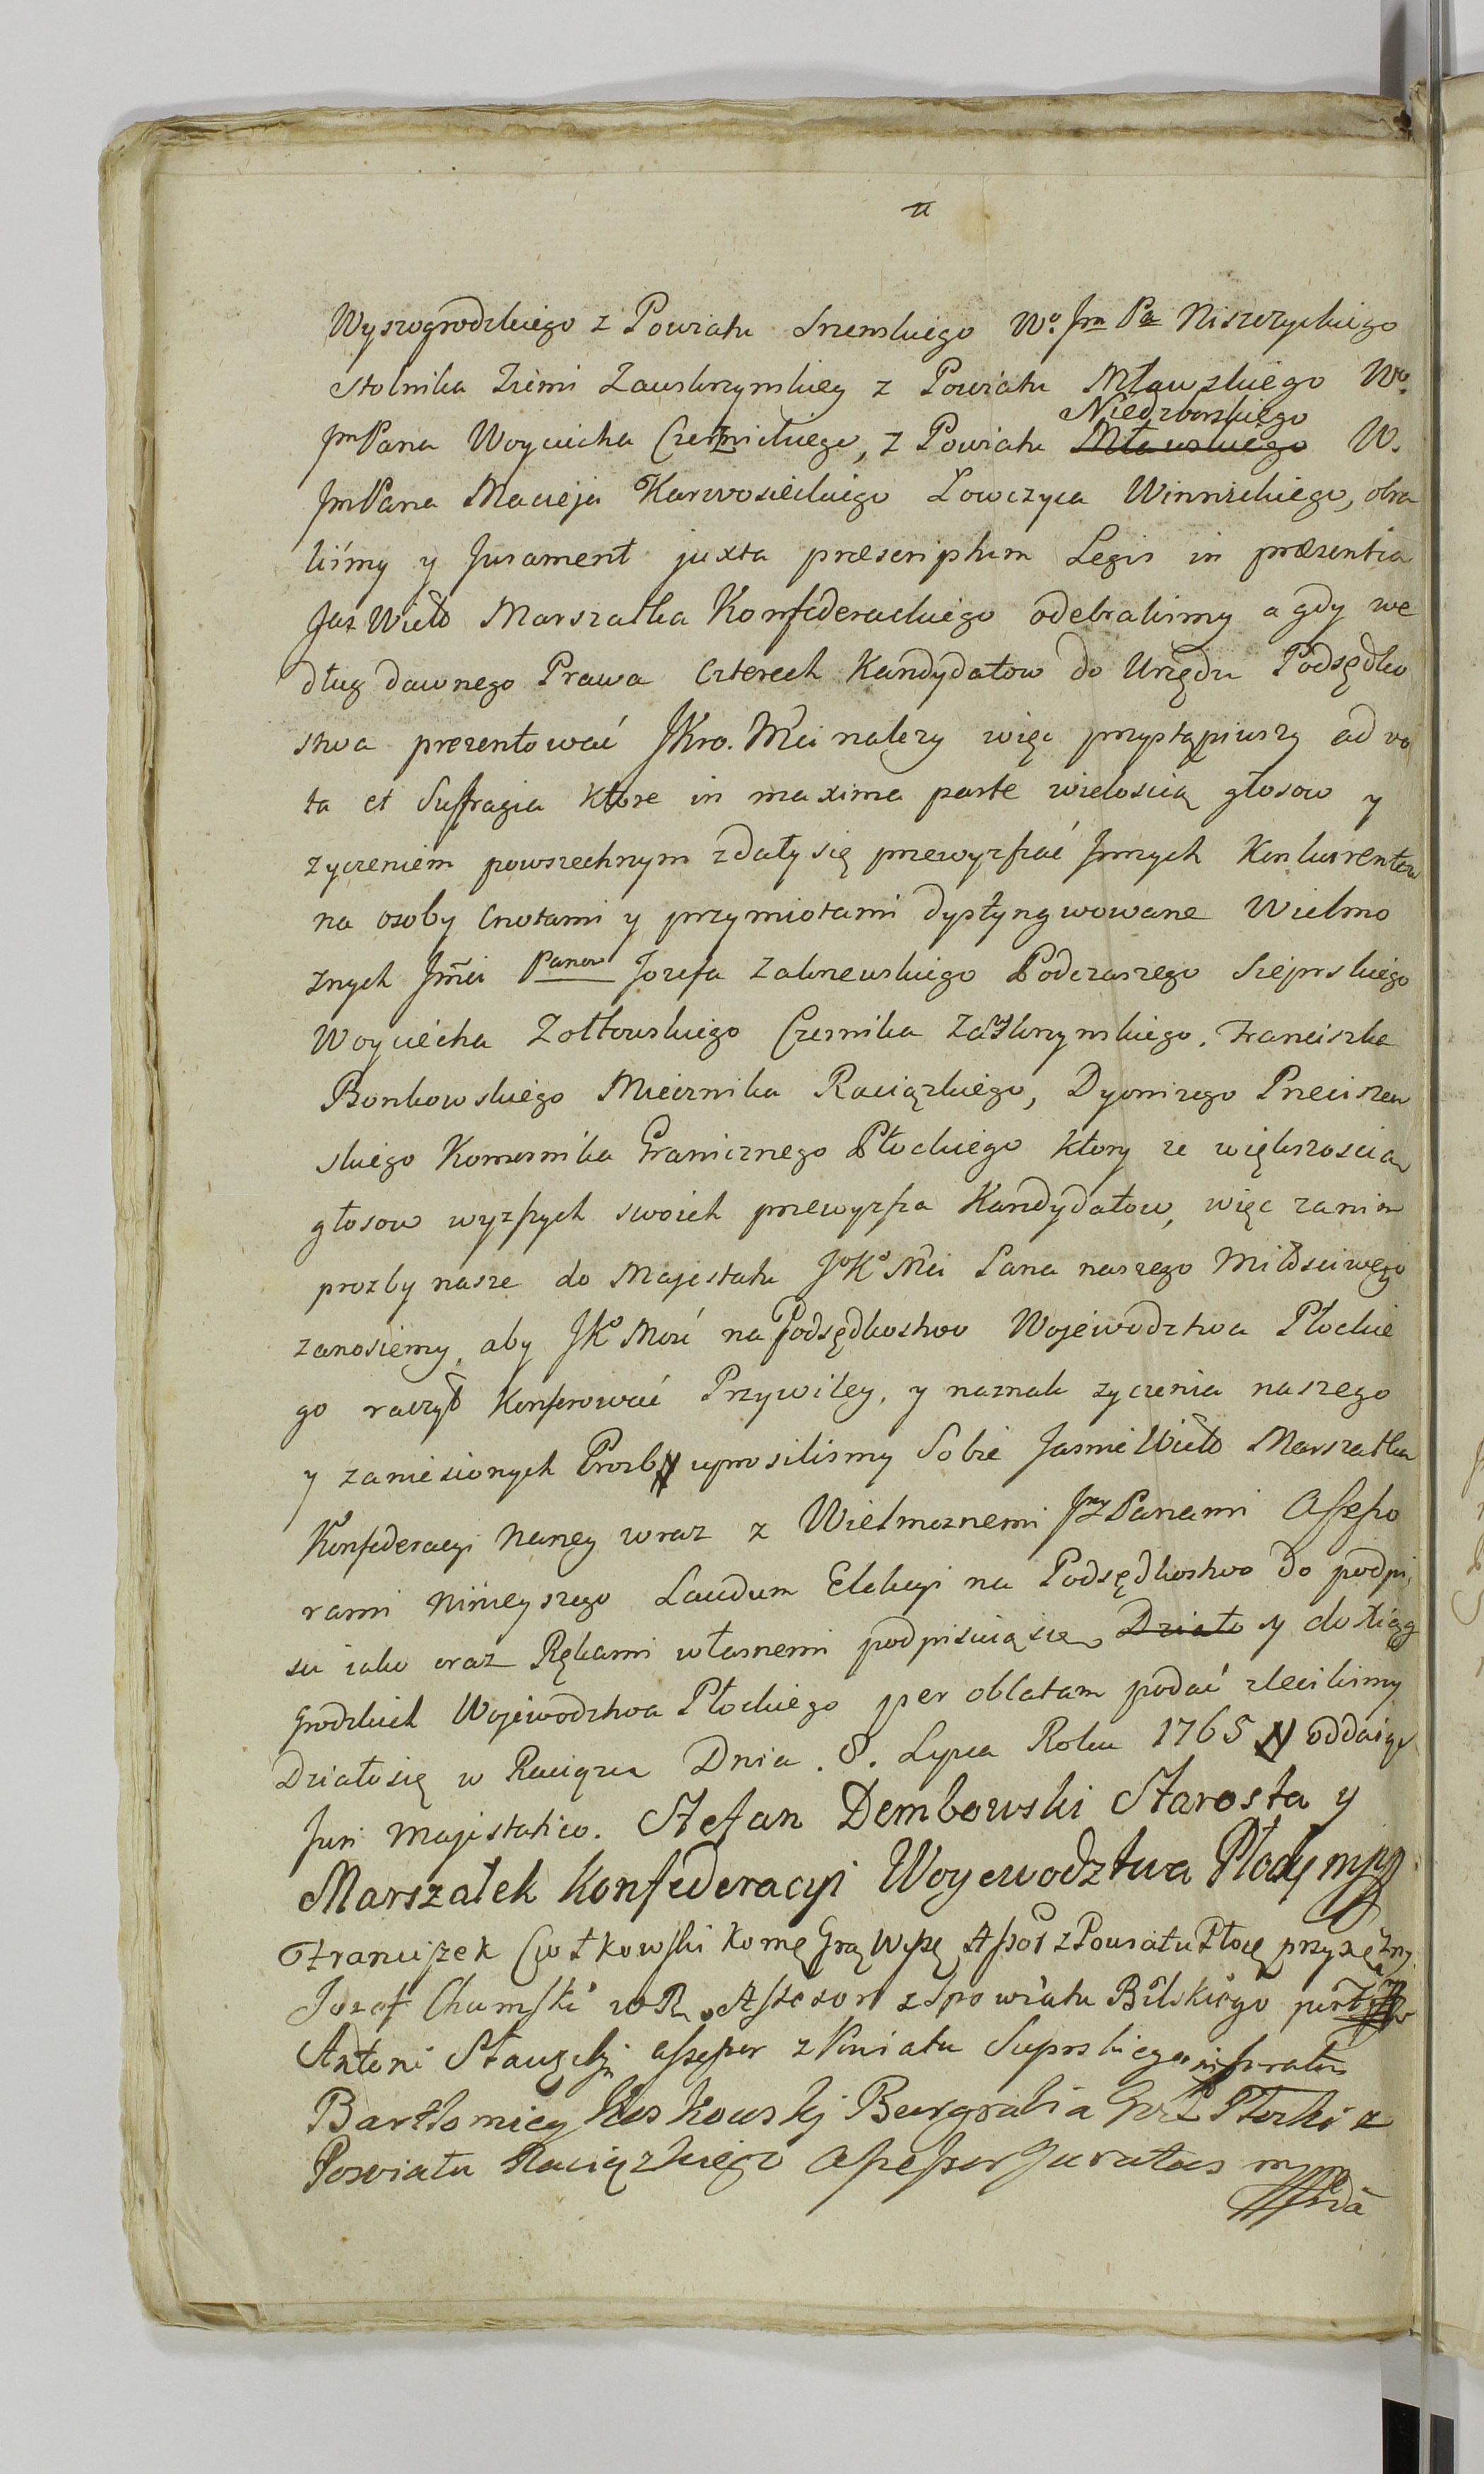 Wyszogrodzkiego z Powiatu Srenskiego Wo Jm Pa Niszczyckiego
Stolnika Ziemi Zawskrzynskiey z Powiatu Mławskiego Wo.
Niedzborskiego
Jm Pana Woyciecha Czernickiego, z Powiatu Mławskiego W.
Jm Pana Macieja Karwosieckiego Łowczyca Winnickiego, obra
liśmy y Jurament juxta præscriptum Legis in præzentia
Jas Wielo Marszałka Konfederackiego odebralismy a gdy we
dług dawnego Prawa czterech Kandydatow do Urzędu Podsędko
stwa prezentować JKro. Mci nalezy więc przystąpiwszy ad vo
ta et Suffragia ktore in maxima parte wielością głosow y
zyczeniem powszechnym zdały się przewyzszać Jnnych Konkurentow
na osoby cnotami y przymiotami dystyngwowane Wielmo
znych Jmci Panow Jozefa Zakrzewskiego Podczaszego Sieprskiego
Woyciecha Zołtowskiego Czesnika Zawskrzynskiego, Franciszka
Bonkowskiego Miecznika Raciązkiego, Dyonizego Preciszew
skiego Komornika Granicznego Płockiego ktory ze większoscią
głosow wyzszych swoich przewyzsza Kandydatow, więc zanim
prozby nasze do Majestatu JoKo Mci Pana naszego Miłosciwego
zanosiemy, aby JKo Mość na Podsędkostwo Wojewodztwa Płockie
go raczył Konferować Przywiley, y naznak zyczenia naszego
y zaniesionych Prozb uprosilismy Sobie Jasnie Wielo Marszałka
Konfederacyi Naney wraz z Wielmoznemi Jm Panami Assesso
rami Ninieyszego Laudum Elekcyi na Podsędkostwo do podpi
su iako oraz Rękami własnemi podpisuią sie Działo y do Xiąg
Grodzkich Wojewodztwa Płockiego per oblatam podać zlecilismy
Działo się w Raciązu Dnia. 8. Lypca Roku 1765 N oddaiąc
Juri Majestatico. Stefan Dembowski Starosta y
Marszałek Konfederacyi Woyewodztwa Płocky mpp
Franciszek Cwtkowski Kome Gra Wyszę Assor z Powiatu Płocę przysiężny
Jozef Chamski w R Assesor z Powiatu Bilskiego
Antoni Assessor z Powiatu Sieprskiego juratus
Bartłomiey Burgrabia Grd Płocki z
Powiatu Raciązkiego Assessor Juratus mpp